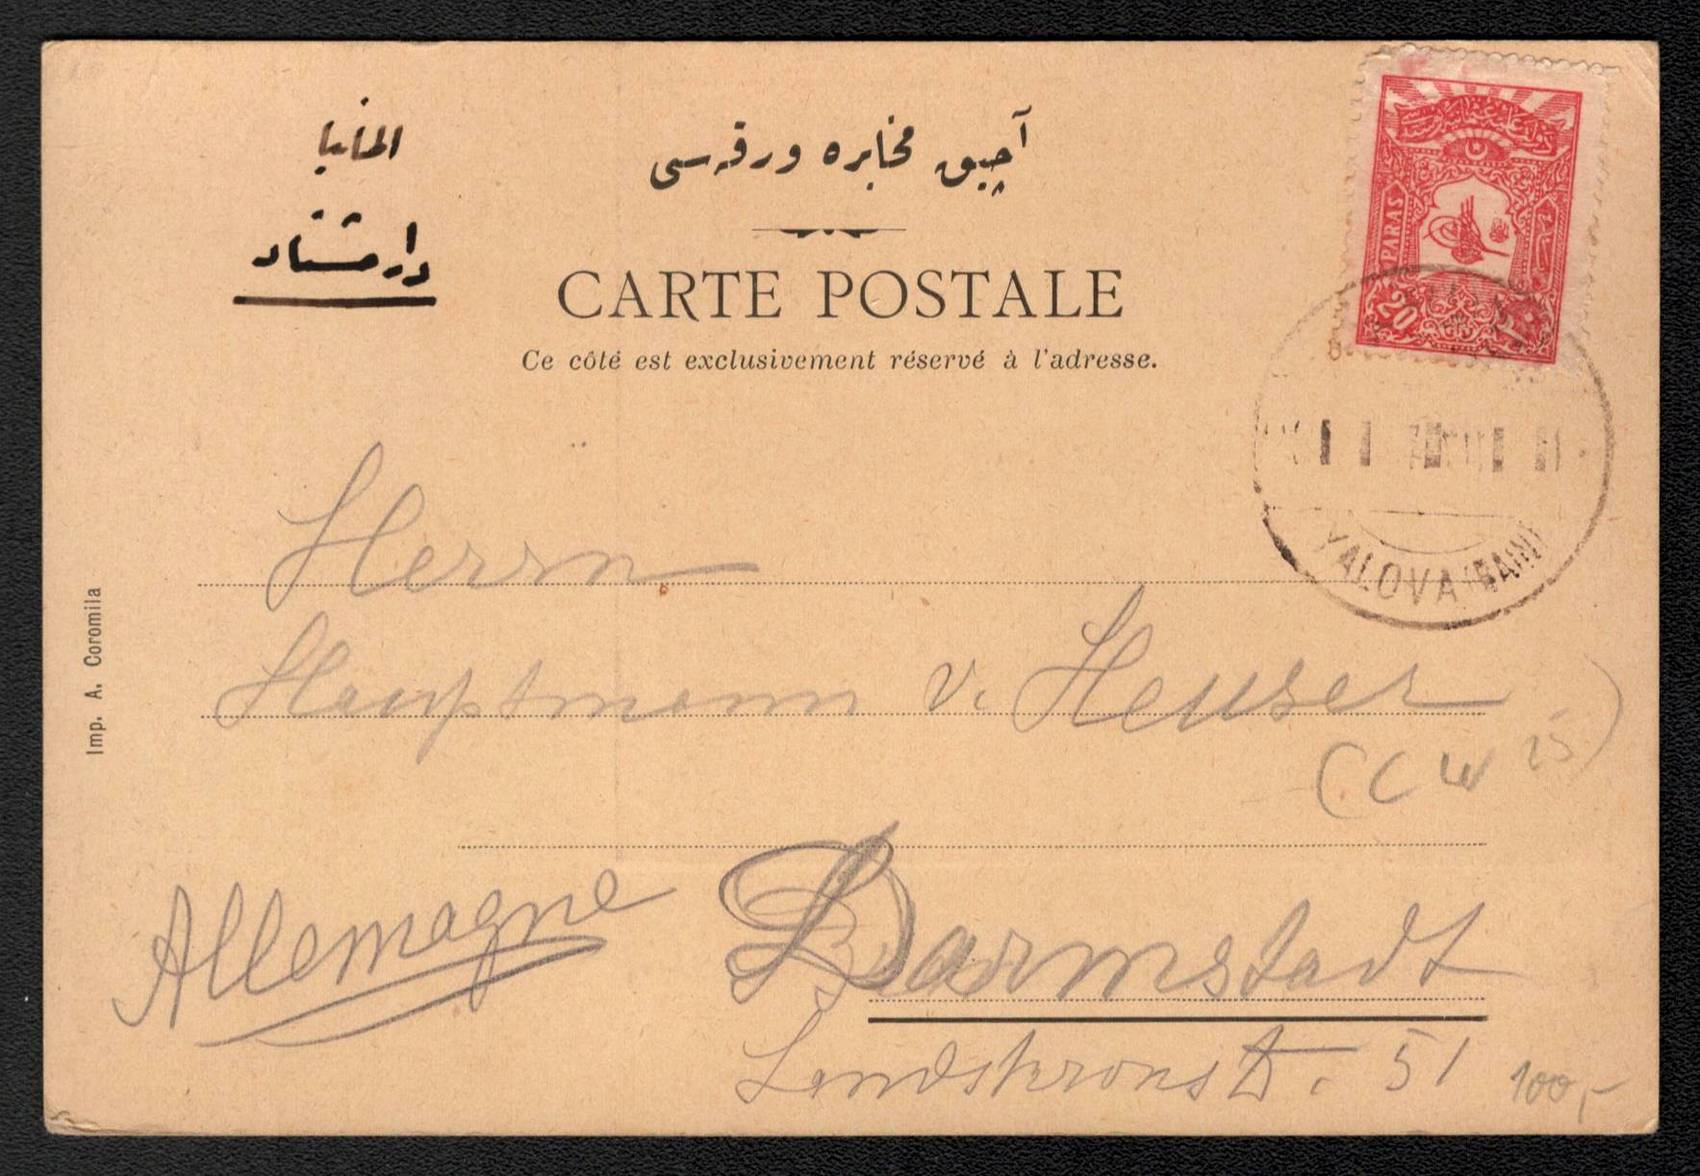 المانيا
دارمشتاد
آچيق مخابره ورقه سى
CARTE POSTALE
Ce côté est exclusivement réservé à l'adresse.
PARAS
20
٢٠
YALOVA
Imp. A. Coromila
Herrn
Hauptmann v. Heuser
(CW 25)
Allemagne
Darmstadt
Landskronstr. 51
100,-